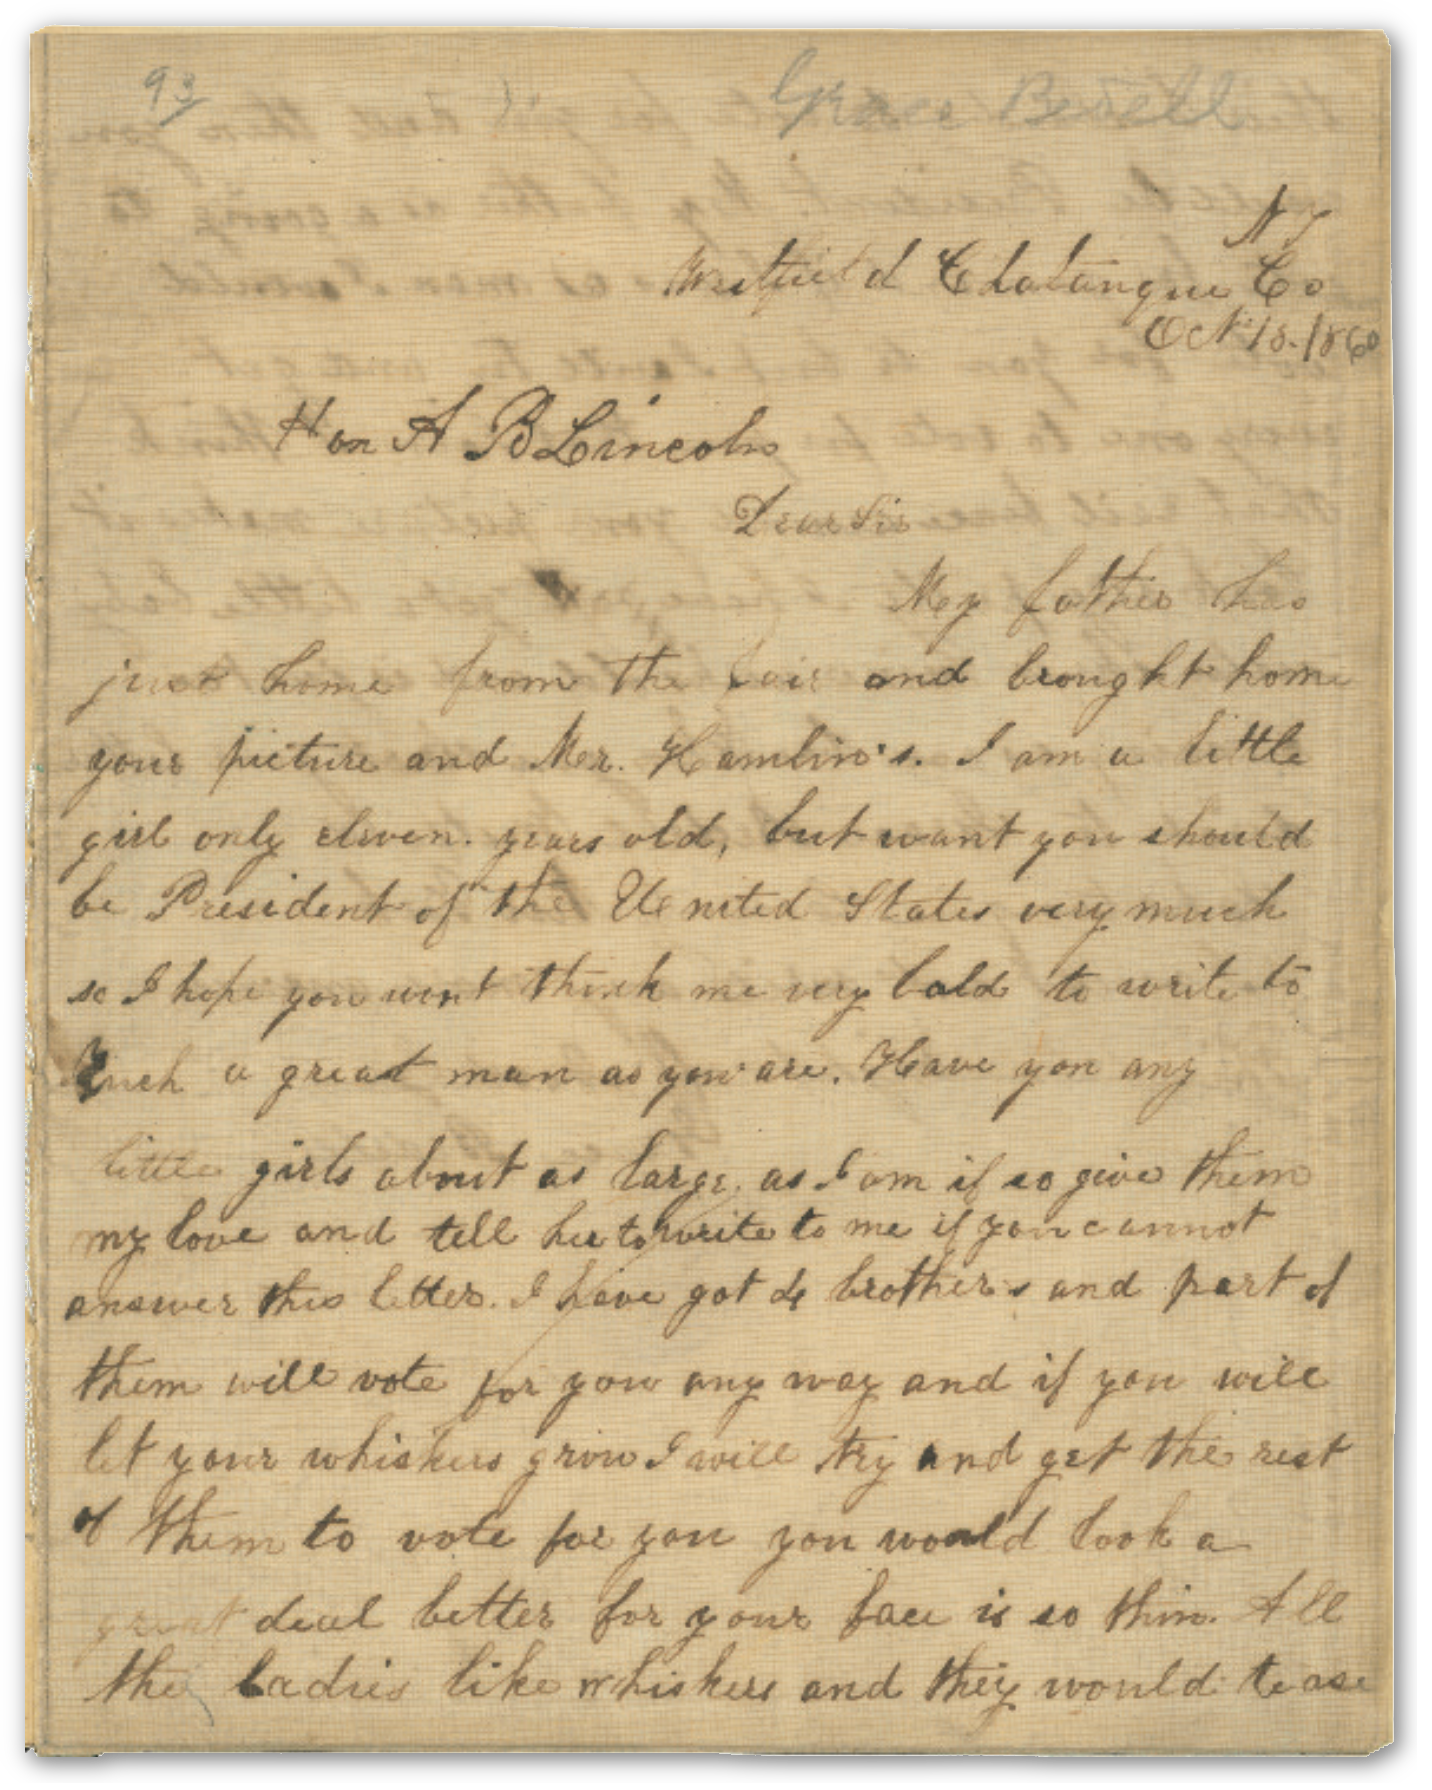 93
Grace Bedell
N Y
Westfield Chatauque Co
Oct 18. 1860
Hon A B Lincoln
Dear Sir
My father has
just home from the fair and brought home
your picture and Mr. Hamlin's. I am a little
girl only eleven. years old, but want you should
be President of the United States very much
so I hope you wont think me very bold to write to
such a great man as you are. Have you any
little girls about as large as I am if so give them
my love and tell her to write to me if you cannot
answer this letter. I have got 4 brothers and part of
them will vote for you any way and if you will
let your whiskers grow I will try and get the rest
of them to vote for you you would look a
great deal better for your face is so thin. All
the ladies like whiskers and they would tease